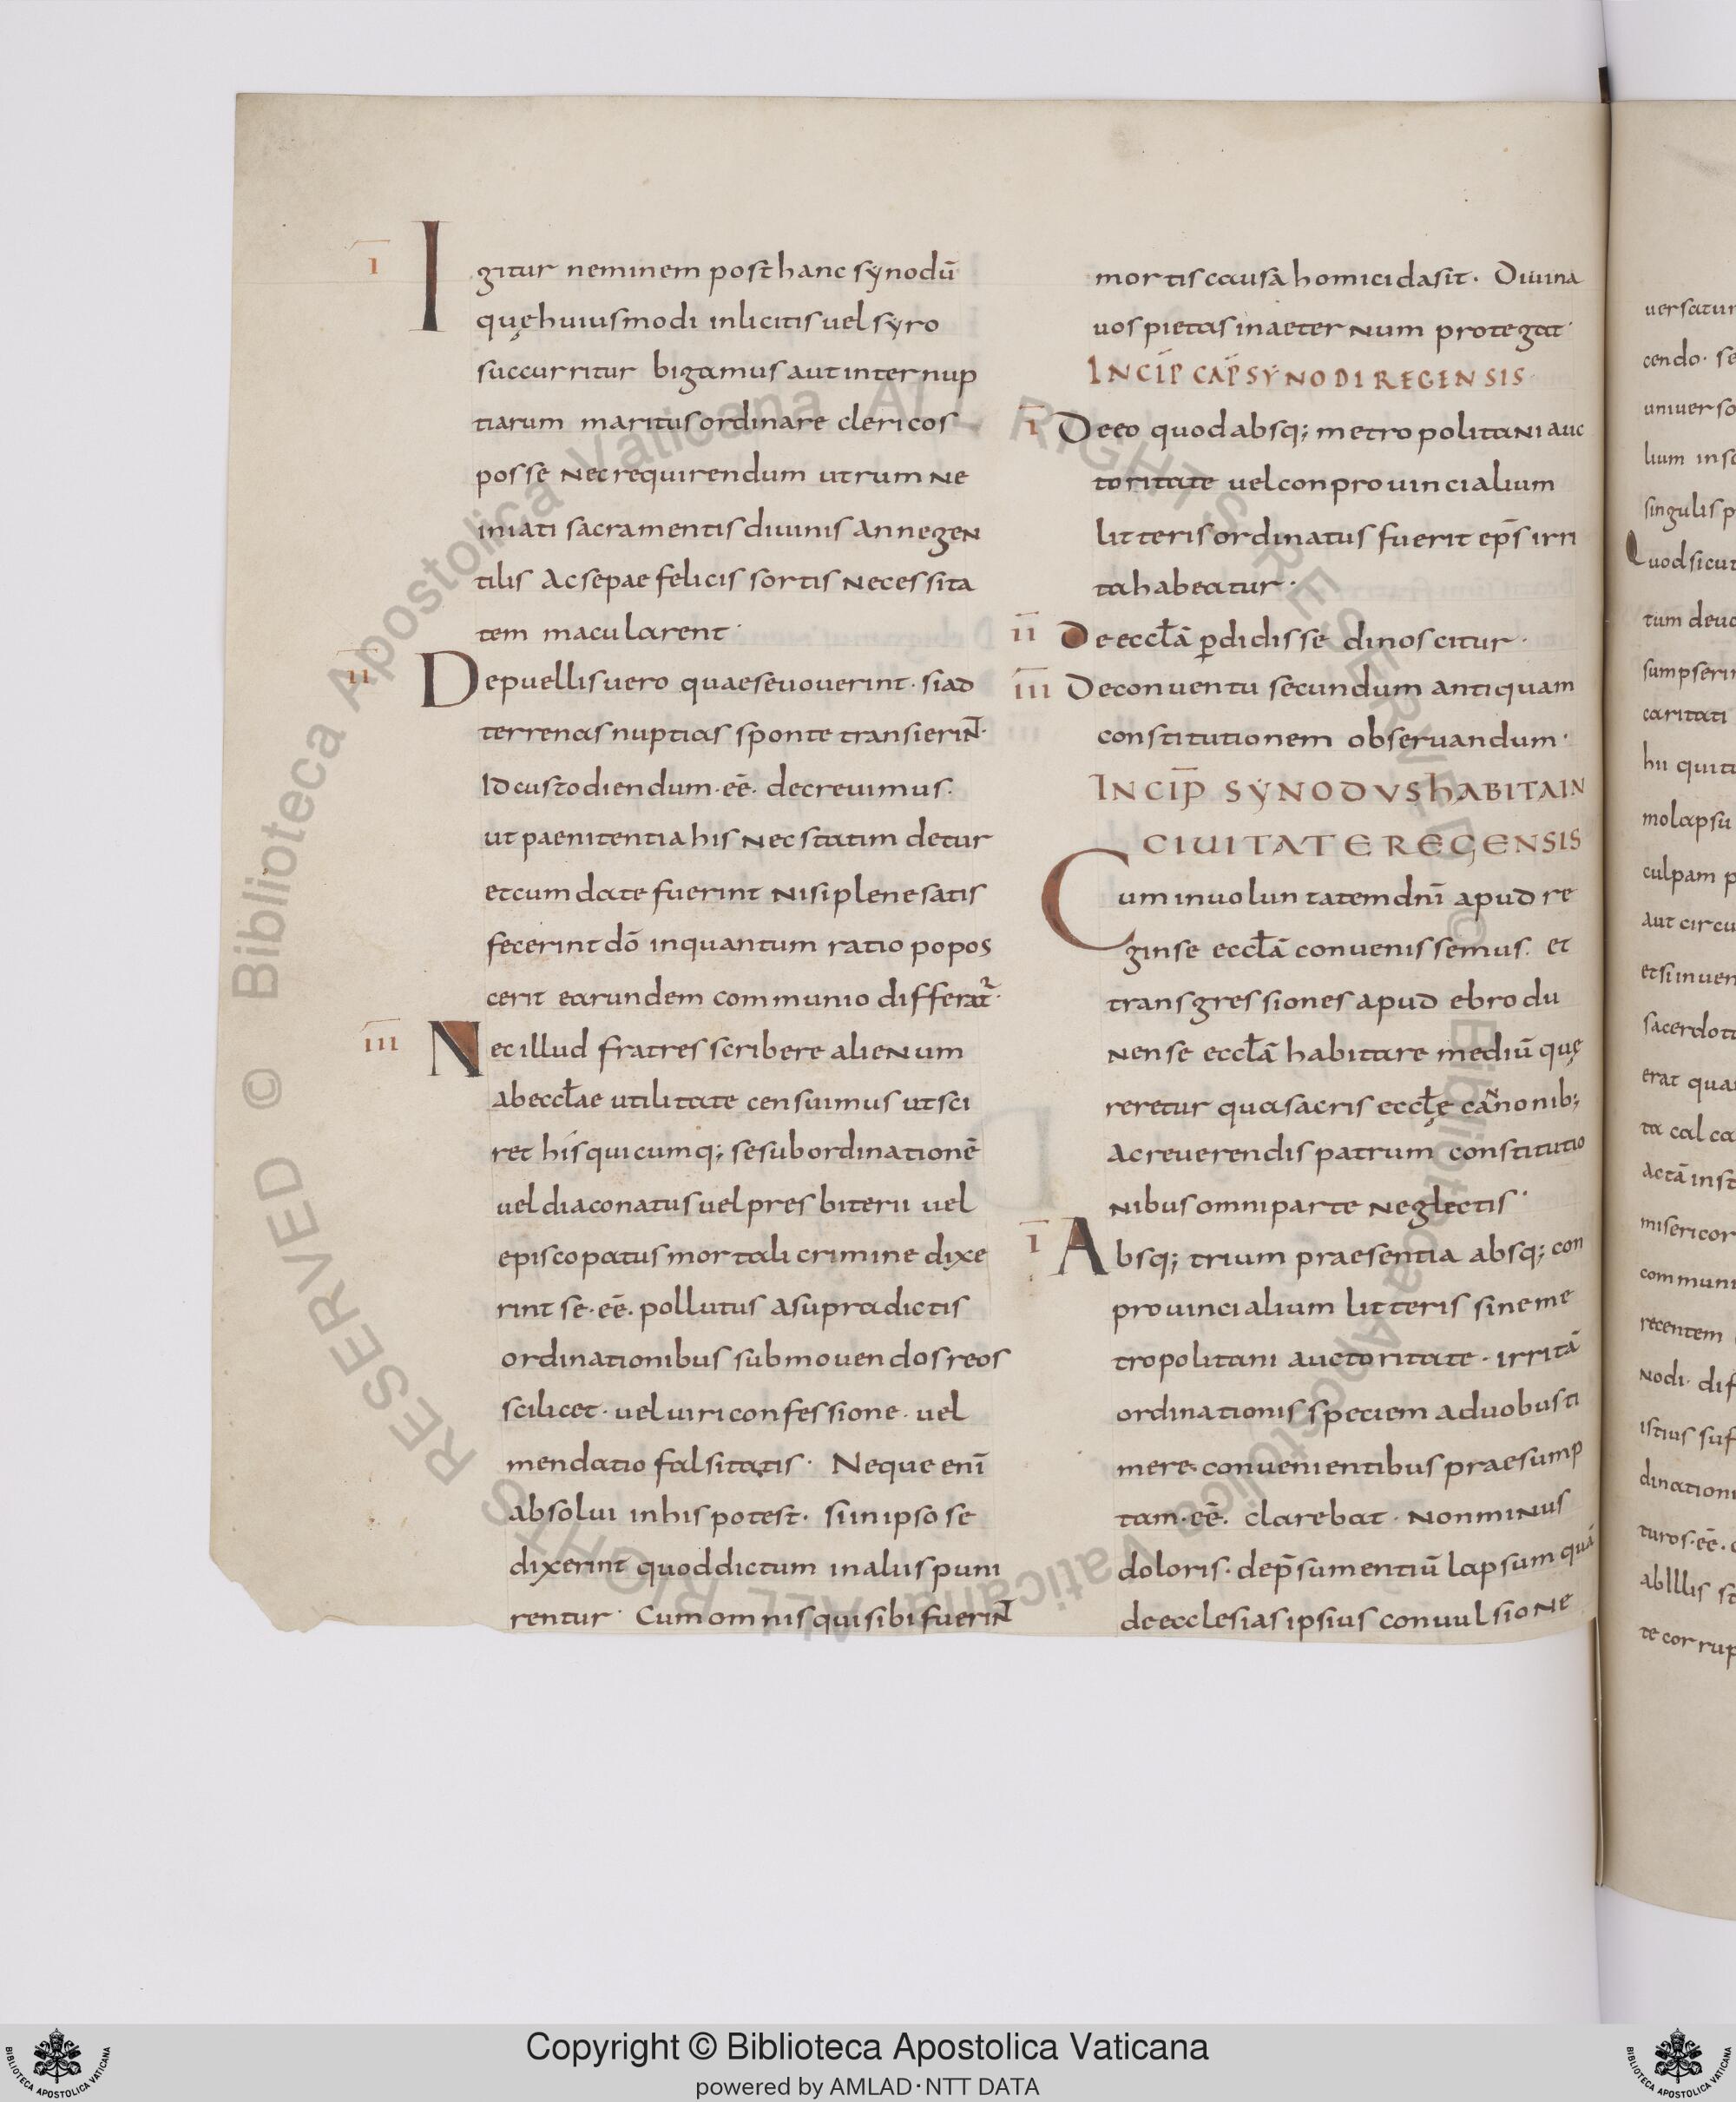 ı̅
Igitur neminem post hanc sẏnodū
quę huiusmodi inlicitis uel sẏro
succurritur bigamus aut internup
tiarum maritus ordinare clericos
posse nec requirendum utrum ne
iniati sacramentis diuinis an negen
tilis ac sepae felicis sortis necessita
tem macularent·
ıı̅
De puellis uero quae se uouerint· si ad
terrenas nuptias sponte transierin̄t·
Id custodiendum· eē· decreuimus·
ut paenitentia his nec statim detur
et cum date fuerint nisi plene satis
fecerint dō inquantum ratio popos
cerit earundem communio differat᷑·
ııı̅
Nec illud fratres scribere alienum
ab eccłae utilitate censuimus ut sci
ret his quicumq; se sub ordinationē
uel diaconatus uel presbiterii uel
episcopatus mortali crimine dixe
rint se· eē· pollutus a supradictis
ordinationibus submouendos reos
scilicet· uel uiri confessione· uel
mendatio falsitatis· Neque enī
absolui in his potest· si in ipso se
dixerint quod dictum in aliis puni
rentur· Cum omnis qui sibi fuerin̄t
mortis causa homicida sit· Diuina
uos pietas in aeternum protegat·
INCIP̄ CAP̄ SẎNODI REGENSIS·
ı̅ De eo quod absq; metropolitani auc
toritate uel conprouincialium
litteris ordinatus fuerit ep̄s irri
ta habeatur·
ıı̅ De eccłā ꝑdidisse dinoscitur·
ııı̅ De conuentu secundum antiquam
constitutionem obseruandum·
INCIP̄ SẎNODVS hABITA IN
CIUITATE REGENSIS
Cum in uoluntatem dn̄i apud re
ginse eccłā conuenissemus· et
transgressiones apud ebrodu
nense eccłā habitare mediū quę
reretur qua sacris eccłę can̄onib;
ac reuerendis patrum constitutio
nibus omni parte neglectis·
ı̅
Absq; trium praesentia absq; con
prouincialium litteris sine me
tropolitani auctoritate· irritā
ordinationis speciem a duobus ti
mere conuenientibus praesump
tam· eē· clarebat· non minus
doloris· dep̄sumentiū lapsum quā
de ecclesias ipsius conuulsione
uersatur
cendo· se
uniuerso
lium
singulis p
Quod sicut
tum deuo
sumpserin
caritati
hii qui
molapsu
culpam p
aut circu
et si inuen
sacerdota
erat qua
ta calca
actā inst
misericor
communi
recentem
nodi· dif
istius suf
dination
turos· eē·
ab Illis st
te corrup
© Biblioteca Apostolica Vaticana ALL RIGHTS RESERVED © Biblioteca Apostolica Vaticana ALL RIGHTS RESERVED
Copyright © Biblioteca Apostolica Vaticana
powered by AMLAD·NTT DATA
BIBLIOTECA APOSTOLICA VATICANA
BIBLIOTECA APOSTOLICA VATICANA